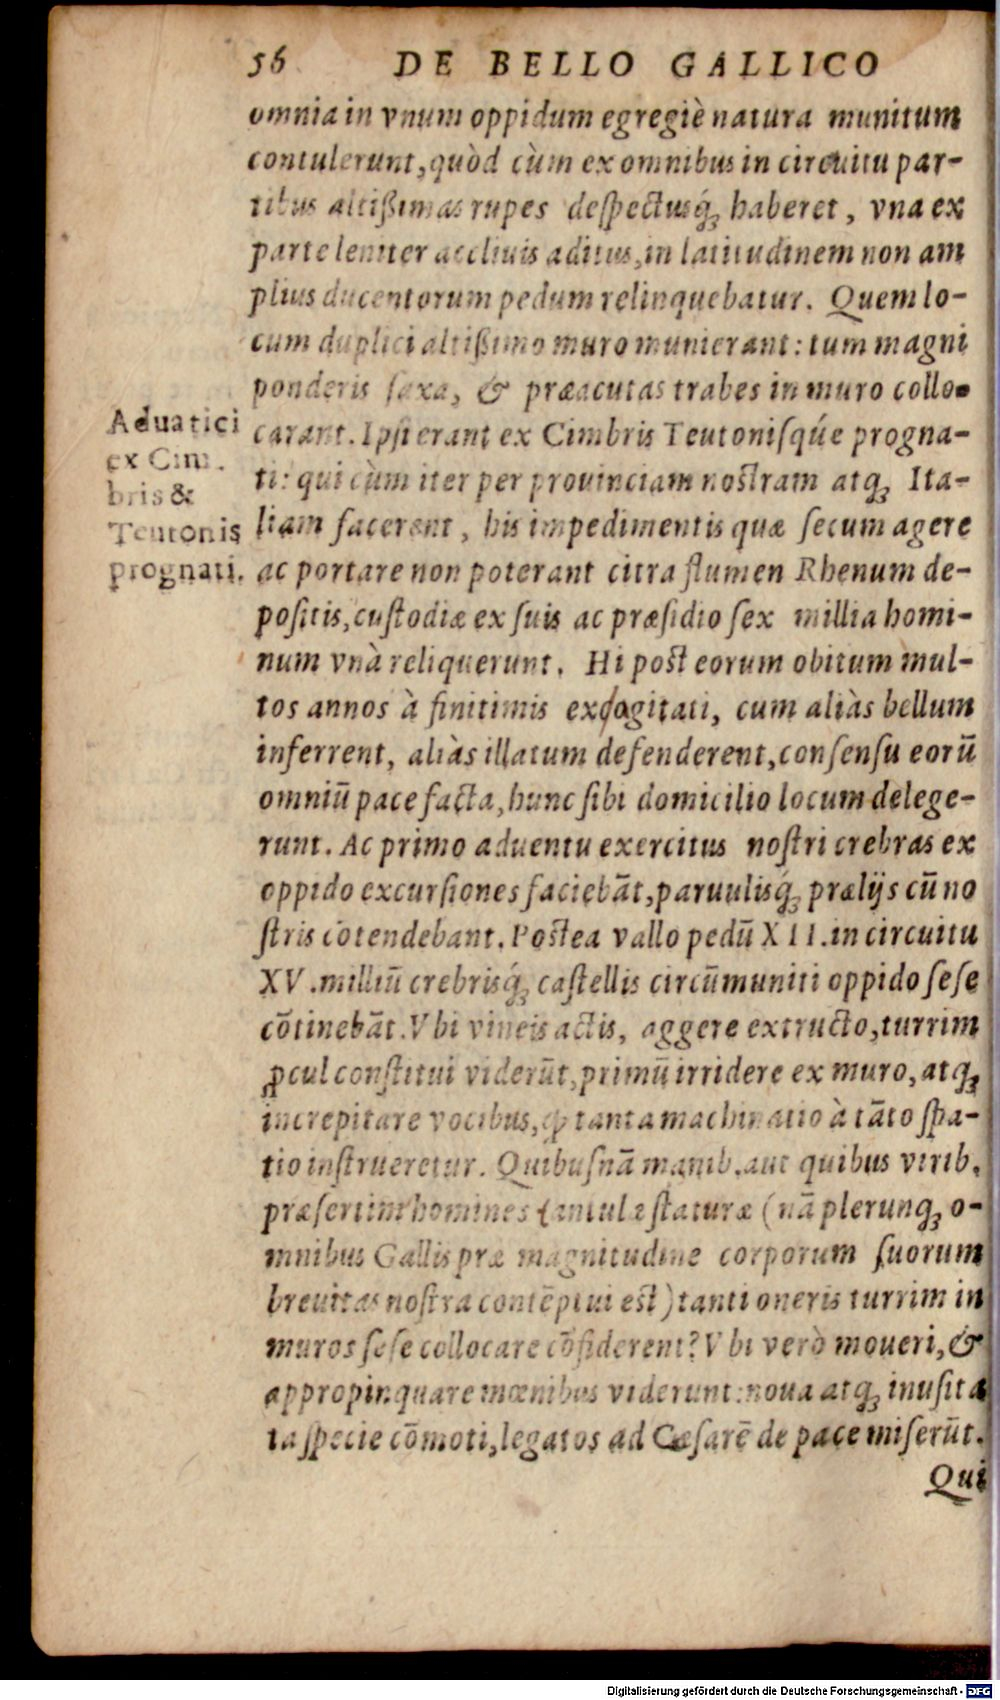 56 DE BELLO GALLICO
omnia in vnum oppidum egregiè natura munitum
contulerunt, quòd cùm ex omnibus in circuitu par-
tibus altißimas rupes deſpectusq́ꝫ haberet, vna ex
parte leniter accliuis aditus, in latitudinem non am
plius ducentorum pedum relinquebatur. Quem lo-
cum duplici altißimo muro munierant: tum magni
ponderis ſaxa, & præacutas trabes in muro collo-
carant. Ipſi erant ex Cimbris Teutoniſqúe progna-
ti: qui cùm iter per prouinciam noſtram atqꝫ Ita-
liam facerent, his impedimentis quæ ſecum agere
ac portare non poterant citra flumen Rhenum de-
poſitis, cuſtodiæ ex ſuis ac præſidio ſex millia homi-
num vnà reliquerunt. Hi poſt eorum obitum mul-
tos annos à finitimis exagitati, cum aliàs bellum
inferrent, aliàs illatum defenderent, conſenſu eorū
omniū pace facta, hunc ſibi domicilio locum delege-
runt. Ac primo aduentu exercitus noſtri crebras ex
oppido excurſiones faciebāt, paruulisq́ꝫ prælijs cū no
ſtris cōtendebant. Poſtea vallo pedū XII. in circuitu
XV. milliū crebrisq́ꝫ caſtellis circūmuniti oppido ſeſe
cōtinebāt. Vbi vineis actis, aggere extructo, turrim
ꝓcul conſtitui viderūt, primū irridere ex muro, atqꝫ
increpitare vocibus, ꝙ tanta machinatio à tāto ſpa-
tio inſtrueretur. Quibuſnā manib. aut quibus virib.
præſertim homines tantulæ ſtaturæ (nā plerunqꝫ o-
mnibus Gallis præ magnitudine corporum ſuorum
breuitas noſtra contēptui eſt) tanti oneris turrim in
muros ſeſe collocare cōfiderent? Vbi verò moueri, &
appropinquare mœnibus viderunt: noua atqꝫ inuſita
ta ſpecie cōmoti, legatos ad Cæſarē de pace miſerūt.
Qui
Aduatici
ex Cim.
bris &
Teutonis
prognati.
Digitalisierung gefördert durch die Deutsche Forschungsgemeinschaft - DFG